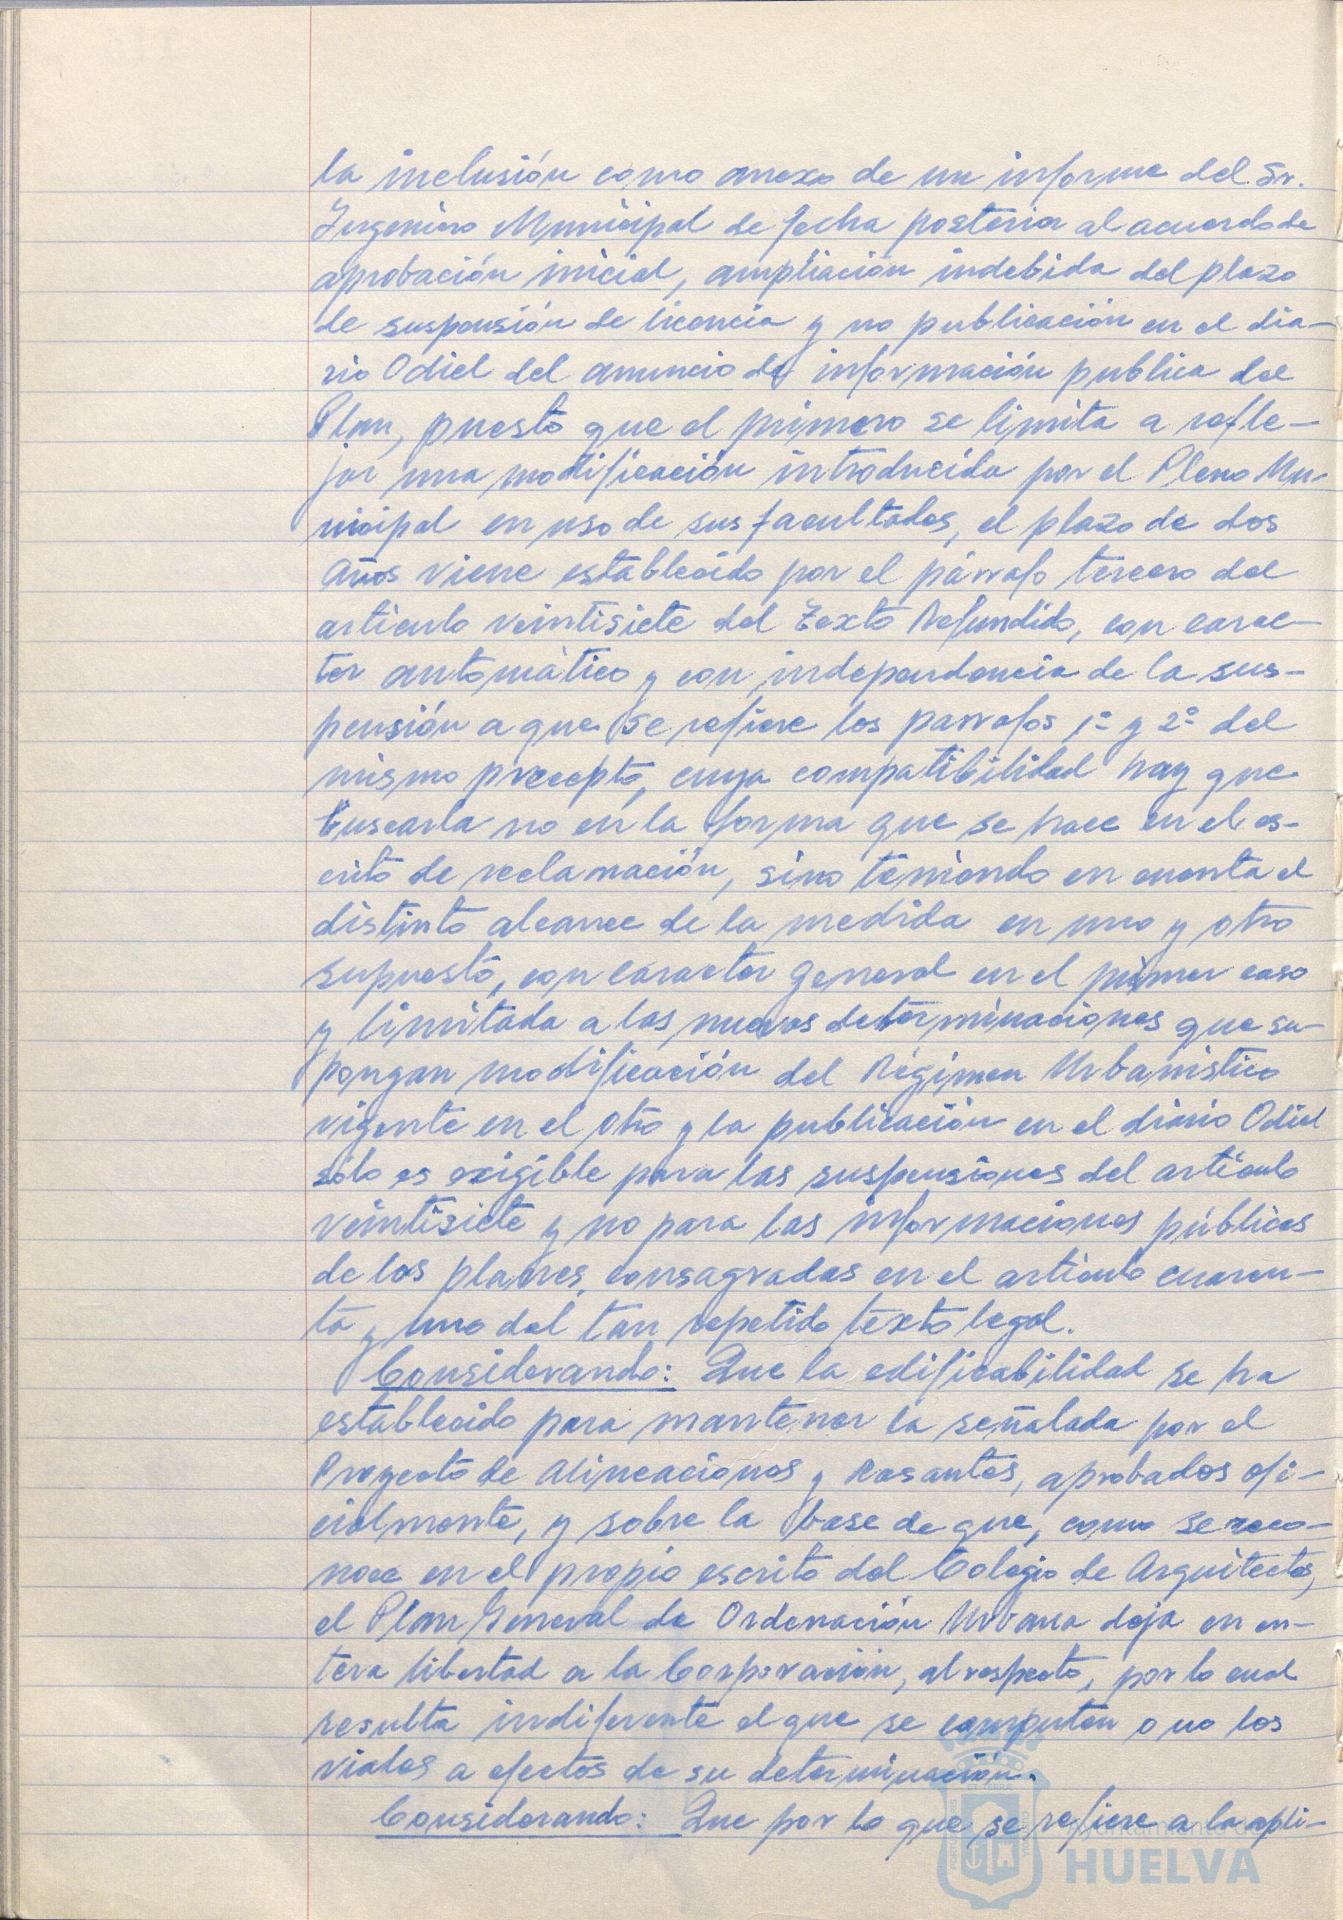 la inclusión como anexo de un informe del Sr.
Ingeniero Municipal de fecha posterior al acuerdo de
aprobación inicial, ampliación indebida del plazo
de suspensión de licencia y no publicación en el dia-
rio Odiel del anuncio de información publica del
Plan, puesto que el primero se limita a refle-
jar una modificación introducida por el Pleno Mu-
nicipal en uso de sus facultades, el plazo de dos
años viene establecido por el párrafo tercero del
articulo veintisiete del Texto Refundido, con carac-
ter automático y con independencia de la sus-
pensión a que se refiere los parrafos 1º y 2º del
mismo precepto, cuya compatibilidad hay que
buscarla no en la forma que se hace en el es-
crito de reclamación, sino teniendo en cuenta el
distinto alcance de la medida en uno y otro
supuesto, con caracter general en el primer caso
y limitada a las nuevas determinaciones que su-
pongan modificación del Régimen Urbanistico
vigente en el otro y la publicación en el diario Odiel
sólo es exigible para las suspensiones del articulo
veintisiete y no para las informaciones públicas
de los planes, consagradas en el articulo cuaren-
ta y uno del tan repetido texto legal.
Considerando: Que la edificabilidad se ha
establecido para mantener la señalada por el
Proyecto de Alineaciones y Rasantes, aprobados ofi-
cialmente, y sobre la base de que, como se reco-
noce en el propio escrito del Colegio de Arquitectos,
el Plan General de Ordenación Urbana deja en en-
tera libertad a la Corporación, al respecto, por lo cual
resulta indiferente el que se computen o no los
viales a efectos de su determinación.
Considerando: Que por lo que se refiere a la apli-
Ayuntamiento de
HUELVA